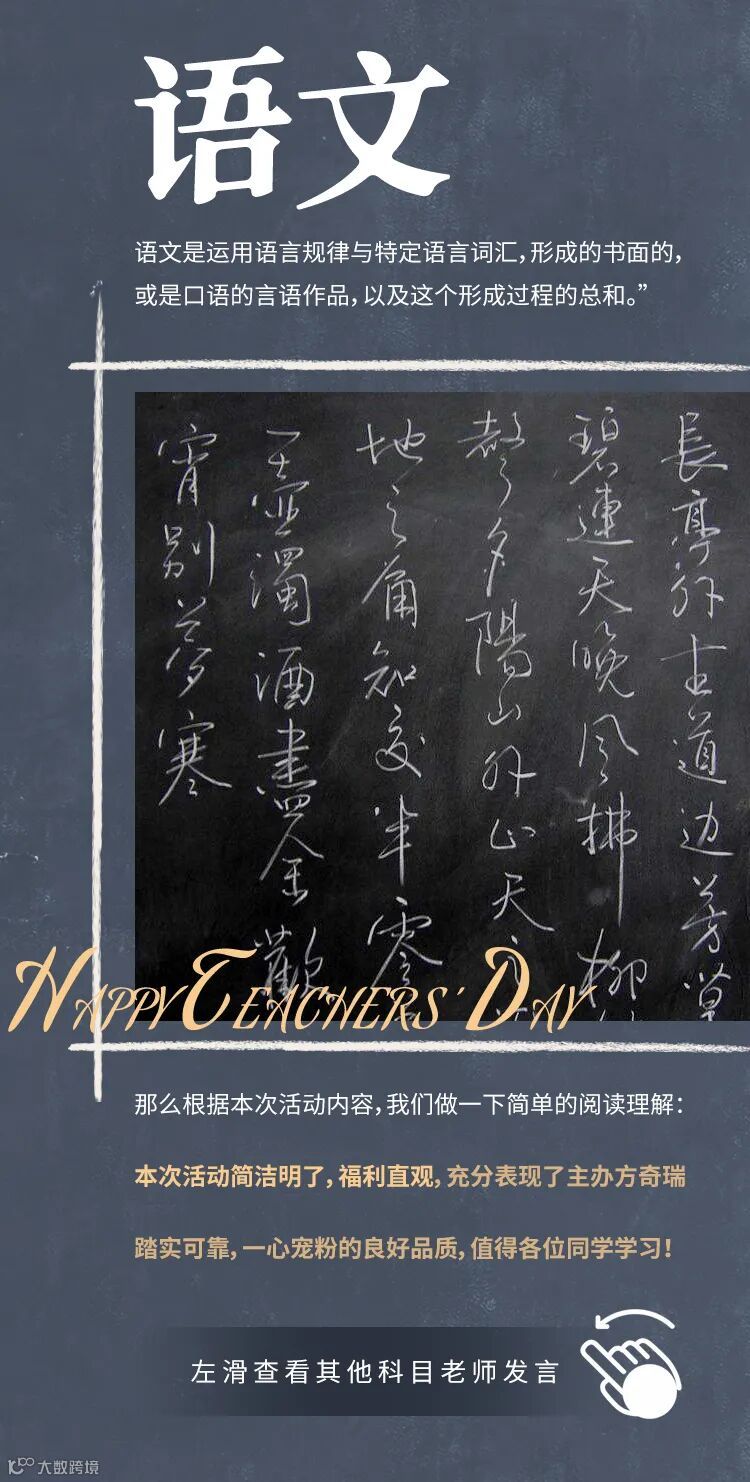 语文
语文是运用语言规律与特定语言词汇，形成的书面的，
或是口语的言语作品，以及这个形成过程的总和。”
長亭外古道边芳草
碧連天晚风拂柳
聲夕陽山外山天
地之角知交半零
一壺濁酒盡余歡
宵别梦寒
HAPPY TEACHERS' DAY
那么根据本次活动内容，我们做一下简单的阅读理解：
本次活动简洁明了，福利直观，充分表现了主办方奇瑞
踏实可靠，一心宠粉的良好品质，值得各位同学学习！
左滑查看其他科目老师发言
大数跨境